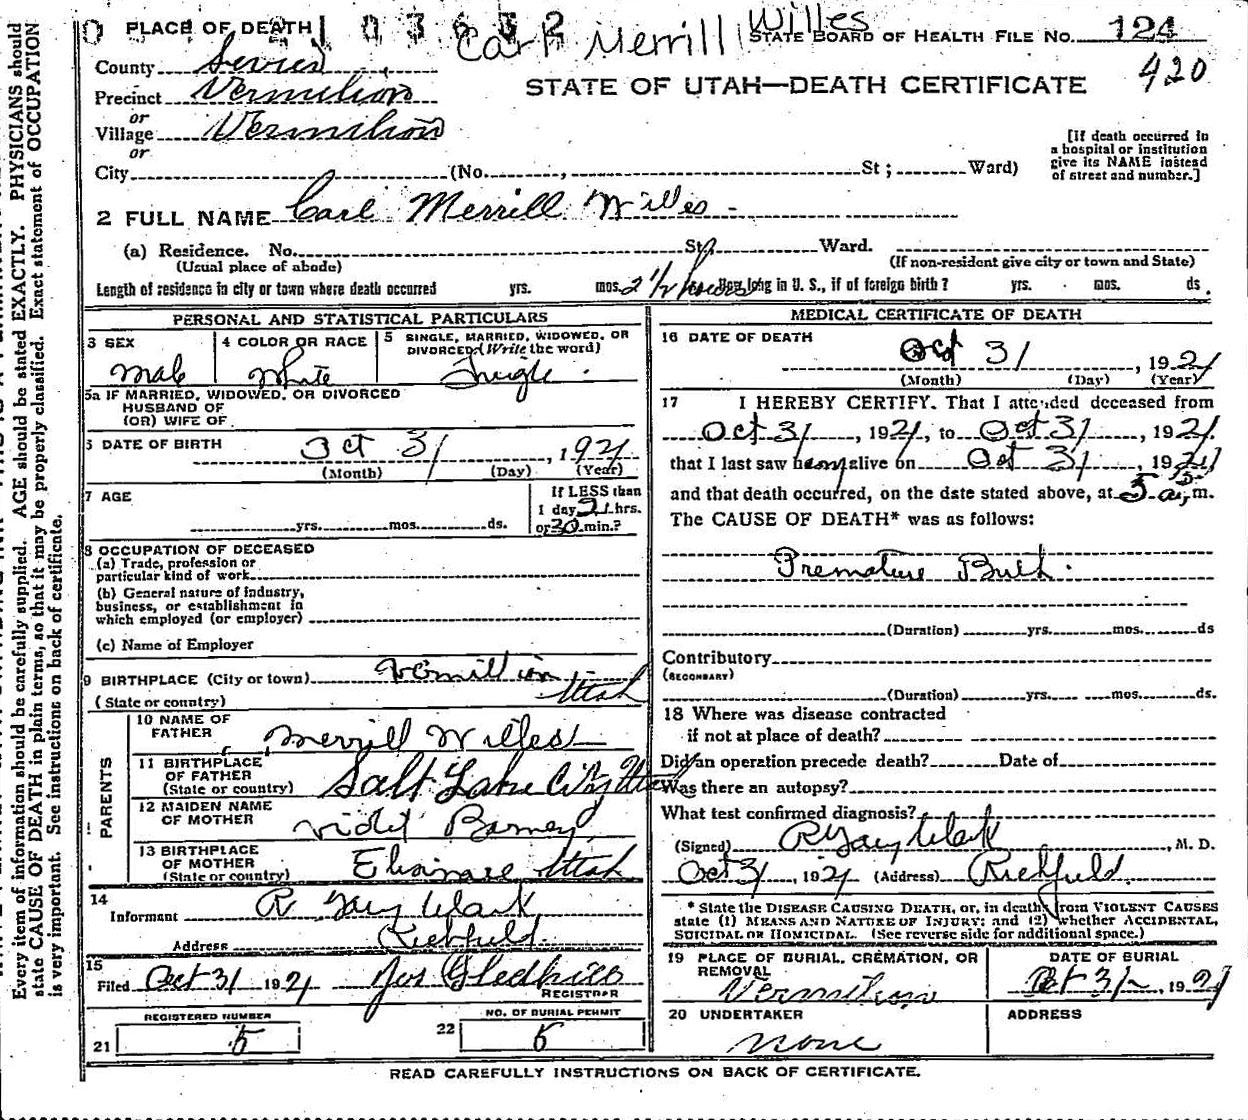 PLACE OF DEATH 0 103632 Carl Merrill Willes STATE BOARD OF HEALTH FILE NO. 124
County Sevier 420
Precinct Vermilion STATE OF UTAH—DEATH CERTIFICATE
or
Village Vermilion
or
City (No. , St ; Ward)
[If death occurred in
a hospital or institution
give its NAME instead
of street and number.]
2 FULL NAME Carl Merrill Willes
(a) Residence. No. St., Ward.
(Usual place of abode) (If non-resident give city or town and State)
Length of residence in city or town where death occurred yrs. mos. 2 1/2 hours How long in U. S., if of foreign birth? yrs. mos. ds.
PERSONAL AND STATISTICAL PARTICULARS
3 SEX 4 COLOR OR RACE 5 SINGLE, MARRIED, WIDOWED, OR
DIVORCED (Write the word)
Male White Single
5a IF MARRIED, WIDOWED, OR DIVORCED
HUSBAND OF
(OR) WIFE OF
6 DATE OF BIRTH Oct 31, 1921
(Month) (Day) (Year)
7 AGE If LESS than
1 day 2 hrs.
yrs. mos. ds. or 30 min.?
8 OCCUPATION OF DECEASED
(a) Trade, profession or
particular kind of work
(b) General nature of industry,
business, or establishment in
which employed (or employer)
(c) Name of Employer
9 BIRTHPLACE (City or town) Vermillion
(State or country) Utah
PARENTS
10 NAME OF
FATHER Merrill Willes
11 BIRTHPLACE
OF FATHER
(State or country) Salt Lake City Utah
12 MAIDEN NAME
OF MOTHER Violet Barney
13 BIRTHPLACE
OF MOTHER
(State or country) Elsinore Utah
14
Informant R Gay Clark
Address Richfield
15
Filed Oct 31 1921 Jos Gledhill
REGISTRAR
REGISTERED NUMBER NO. OF BURIAL PERMIT
21 5 22 5
MEDICAL CERTIFICATE OF DEATH
16 DATE OF DEATH
Oct 31, 1921
(Month) (Day) (Year)
17 I HEREBY CERTIFY. That I attended deceased from
Oct 31, 1921, to Oct 31, 1921.
that I last saw him alive on Oct 31, 1921
and that death occurred, on the date stated above, at 5 a. m.
The CAUSE OF DEATH* was as follows:
Premature Birth.
(Duration) yrs. mos. ds
Contributory
(SECONDARY)
(Duration) yrs. mos. ds.
18 Where was disease contracted
if not at place of death?
Did an operation precede death? Date of
Was there an autopsy?
What test confirmed diagnosis?
(Signed) R Gay Clark, M. D.
Oct 31, 1921 (Address) Richfield.
* State the DISEASE CAUSING DEATH, or, in deaths from VIOLENT CAUSES
state (1) MEANS AND NATURE OF INJURY; and (2) whether ACCIDENTAL,
SUICIDAL OR HOMICIDAL. (See reverse side for additional space.)
19 PLACE OF BURIAL, CREMATION, OR
REMOVAL
Vermilion
DATE OF BURIAL
Oct 31, 1921
20 UNDERTAKER
none
ADDRESS
READ CAREFULLY INSTRUCTIONS ON BACK OF CERTIFICATE.
Every item of information should be carefully supplied. AGE should be stated EXACTLY. PHYSICIANS should
state CAUSE OF DEATH in plain terms, so that it may be properly classified. Exact statement of OCCUPATION
is very important. See instructions on back of certificate.